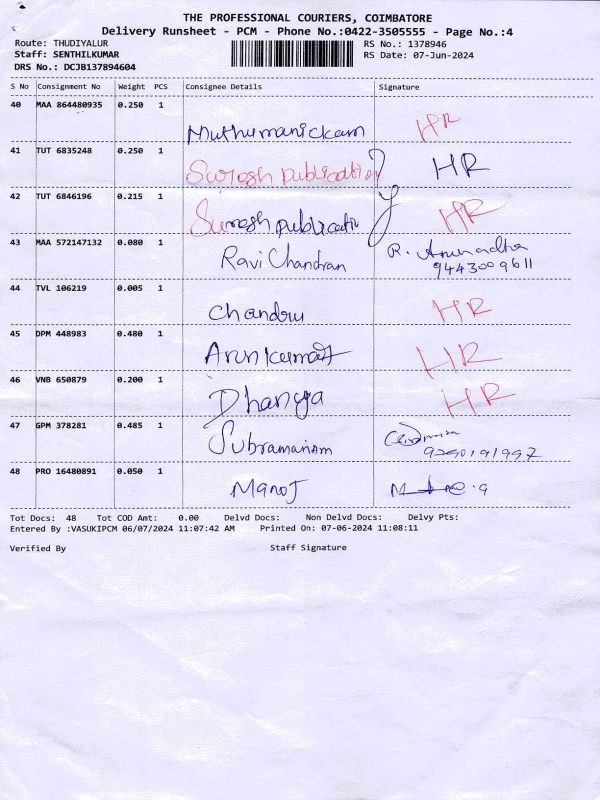 THE PROFESSIONAL COURIERS, COIMBATORE
Delivery Runsheet - PCM - Phone No.:0422-3505555 - Page No.:4
Route: THUDIYALUR RS No.: 1378946
Staff: SENTHILKUMAR RS Date: 07-Jun-2024
DRS No.: DCJB137894604
S No Consignment No Weight PCS Consignee Details Signature
40 MAA 864480935 0.250 1
Muthumanickam HR
41 TUT 6835248 0.250 1
Suresh publication HR
42 TUT 6846196 0.215 1
Suresh publicatin HR
43 MAA 572147132 0.080 1
Ravi Chandran R. Anuradha
9443009611
44 TVL 106219 0.005 1
Chandru HR
45 DPM 448983 0.480 1
Arunkumar HR
46 VNB 650879 0.200 1
Dhanya HR
47 GPM 378281 0.485 1
Subramaniam
48 PRO 16480891 0.050 1
Manoj
Tot Docs: 48 Tot COD Amt: 0.00 Delvd Docs: Non Delvd Docs: Delvy Pts:
Entered By :VASUKIPCM 06/07/2024 11:07:42 AM Printed On: 07-06-2024 11:08:11
Verified By Staff Signature